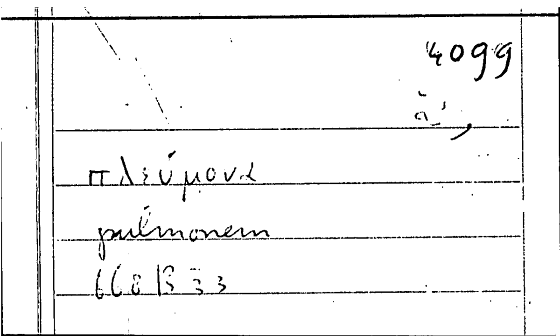 4099
πλεύμονα
pulmonem
668 B 33